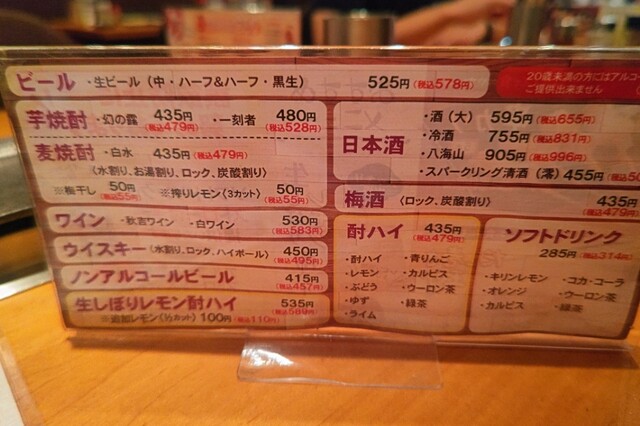 ビール ・生ビール（中・ハーフ&ハーフ・黒生） 525円(税込578円)
20歳未満の方にはアルコ
ご提供出来ません
芋焼酎 ・幻の露 435円(税込479円) ・一刻者 480円(税込528円)
麦焼酎 ・白水 435円(税込479円)
（水割り、お湯割り、ロック、炭酸割り）
※梅干し 50円(税込55円) ※搾りレモン(3カット) 50円(税込55円)
ワイン ・秋吉ワイン ・白ワイン 530円(税込583円)
ウイスキー（水割り、ロック、ハイボール） 450円(税込495円)
ノンアルコールビール 415円(税込457円)
生しぼりレモン酎ハイ 535円(税込589円)
※追加レモン(½カット) 100円(税込110円)
日本酒
・酒（大） 595円(税込655円)
・冷酒 755円(税込831円)
・八海山 905円(税込996円)
・スパークリング清酒（澪） 455円(税込50
梅酒 （ロック、炭酸割り） 435円(税込479円
酎ハイ 435円(税込479円)
・酎ハイ ・青りんご
・レモン ・カルピス
・ぶどう ・ウーロン茶
・ゆず ・緑茶
・ライム
ソフトドリンク
285円(税込314円)
・キリンレモン ・コカ・コーラ
・オレンジ ・ウーロン茶
・カルピス ・緑茶